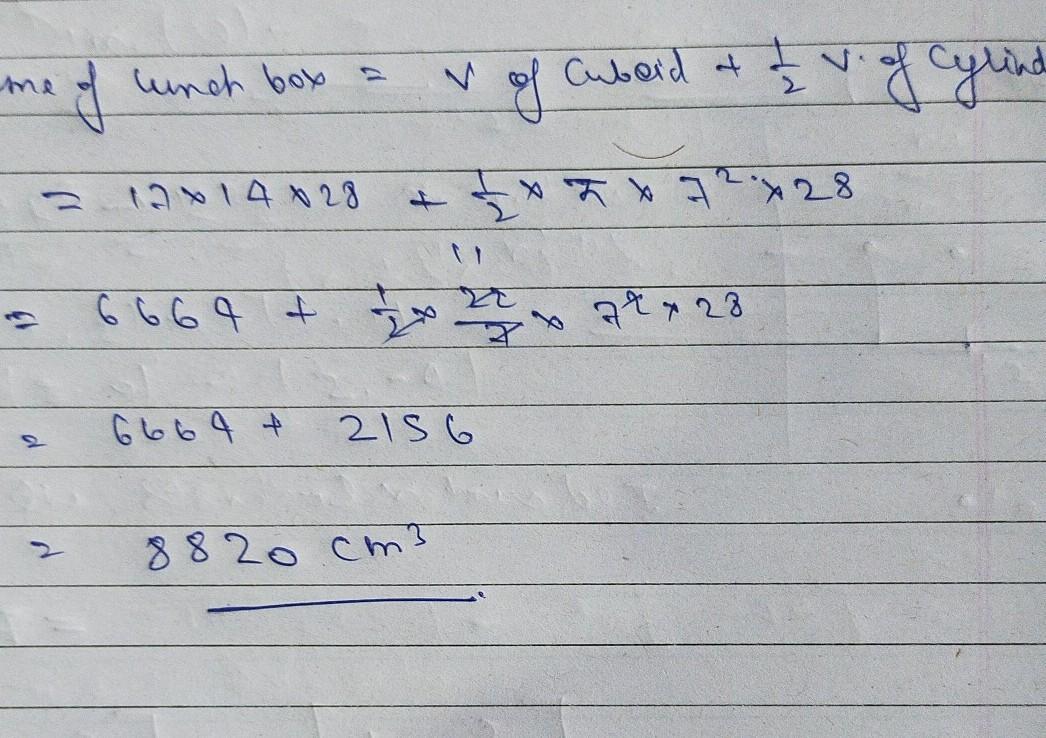 me of lunch box = V of Cuboid + 1/2 V. of Cylind
= 17 × 14 × 28 + 1/2 × π × 7² × 28
11
= 6664 + 1/2 × 22/7 × 7² × 28
= 6664 + 2156
= 8820 cm³